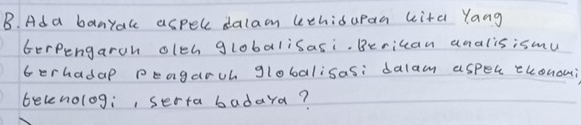 8. Ada banyak aspek dalam kehidupan kita Yang
berpengaruh oleh globalisasi. Berikan analisismu
berhadap Pengaruh globalisasi dalam aspek ekonomi,
teknologi, serta badaya?